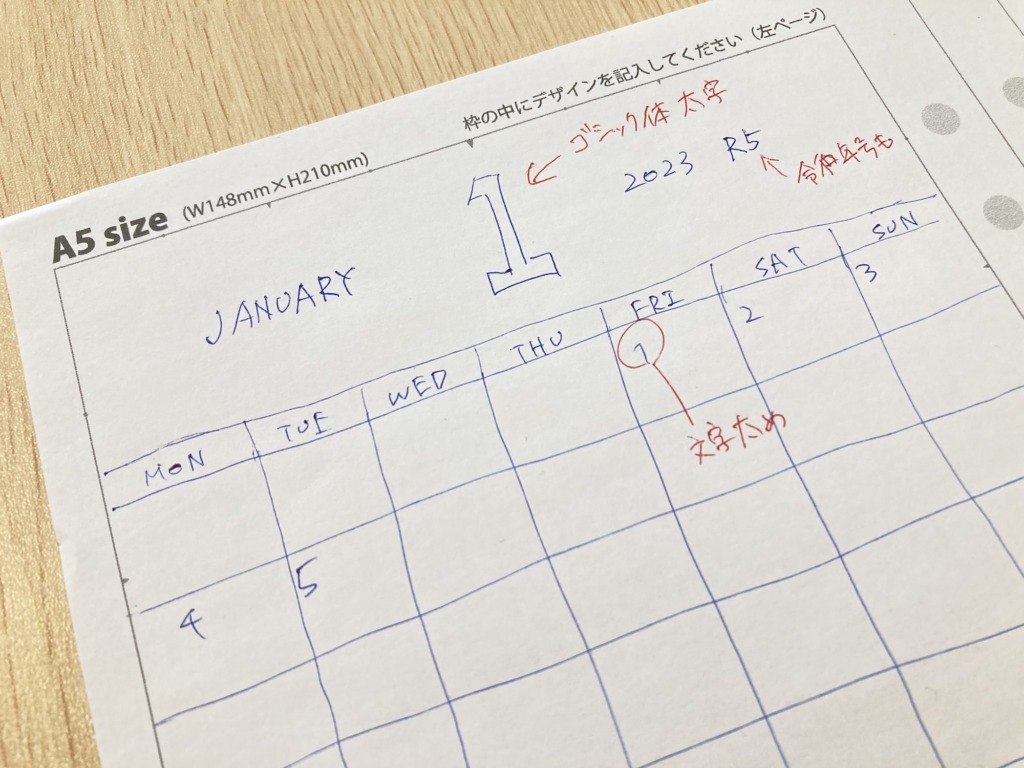 枠の中にデザインを記入してください（左ページ）
A5 size (W148mm×H210mm)
ゴシック体 太字
1
2023 R5
令和年号も
JANUARY
MON TUE WED THU FRI SAT SUN
1 2 3
文字太め
4 5